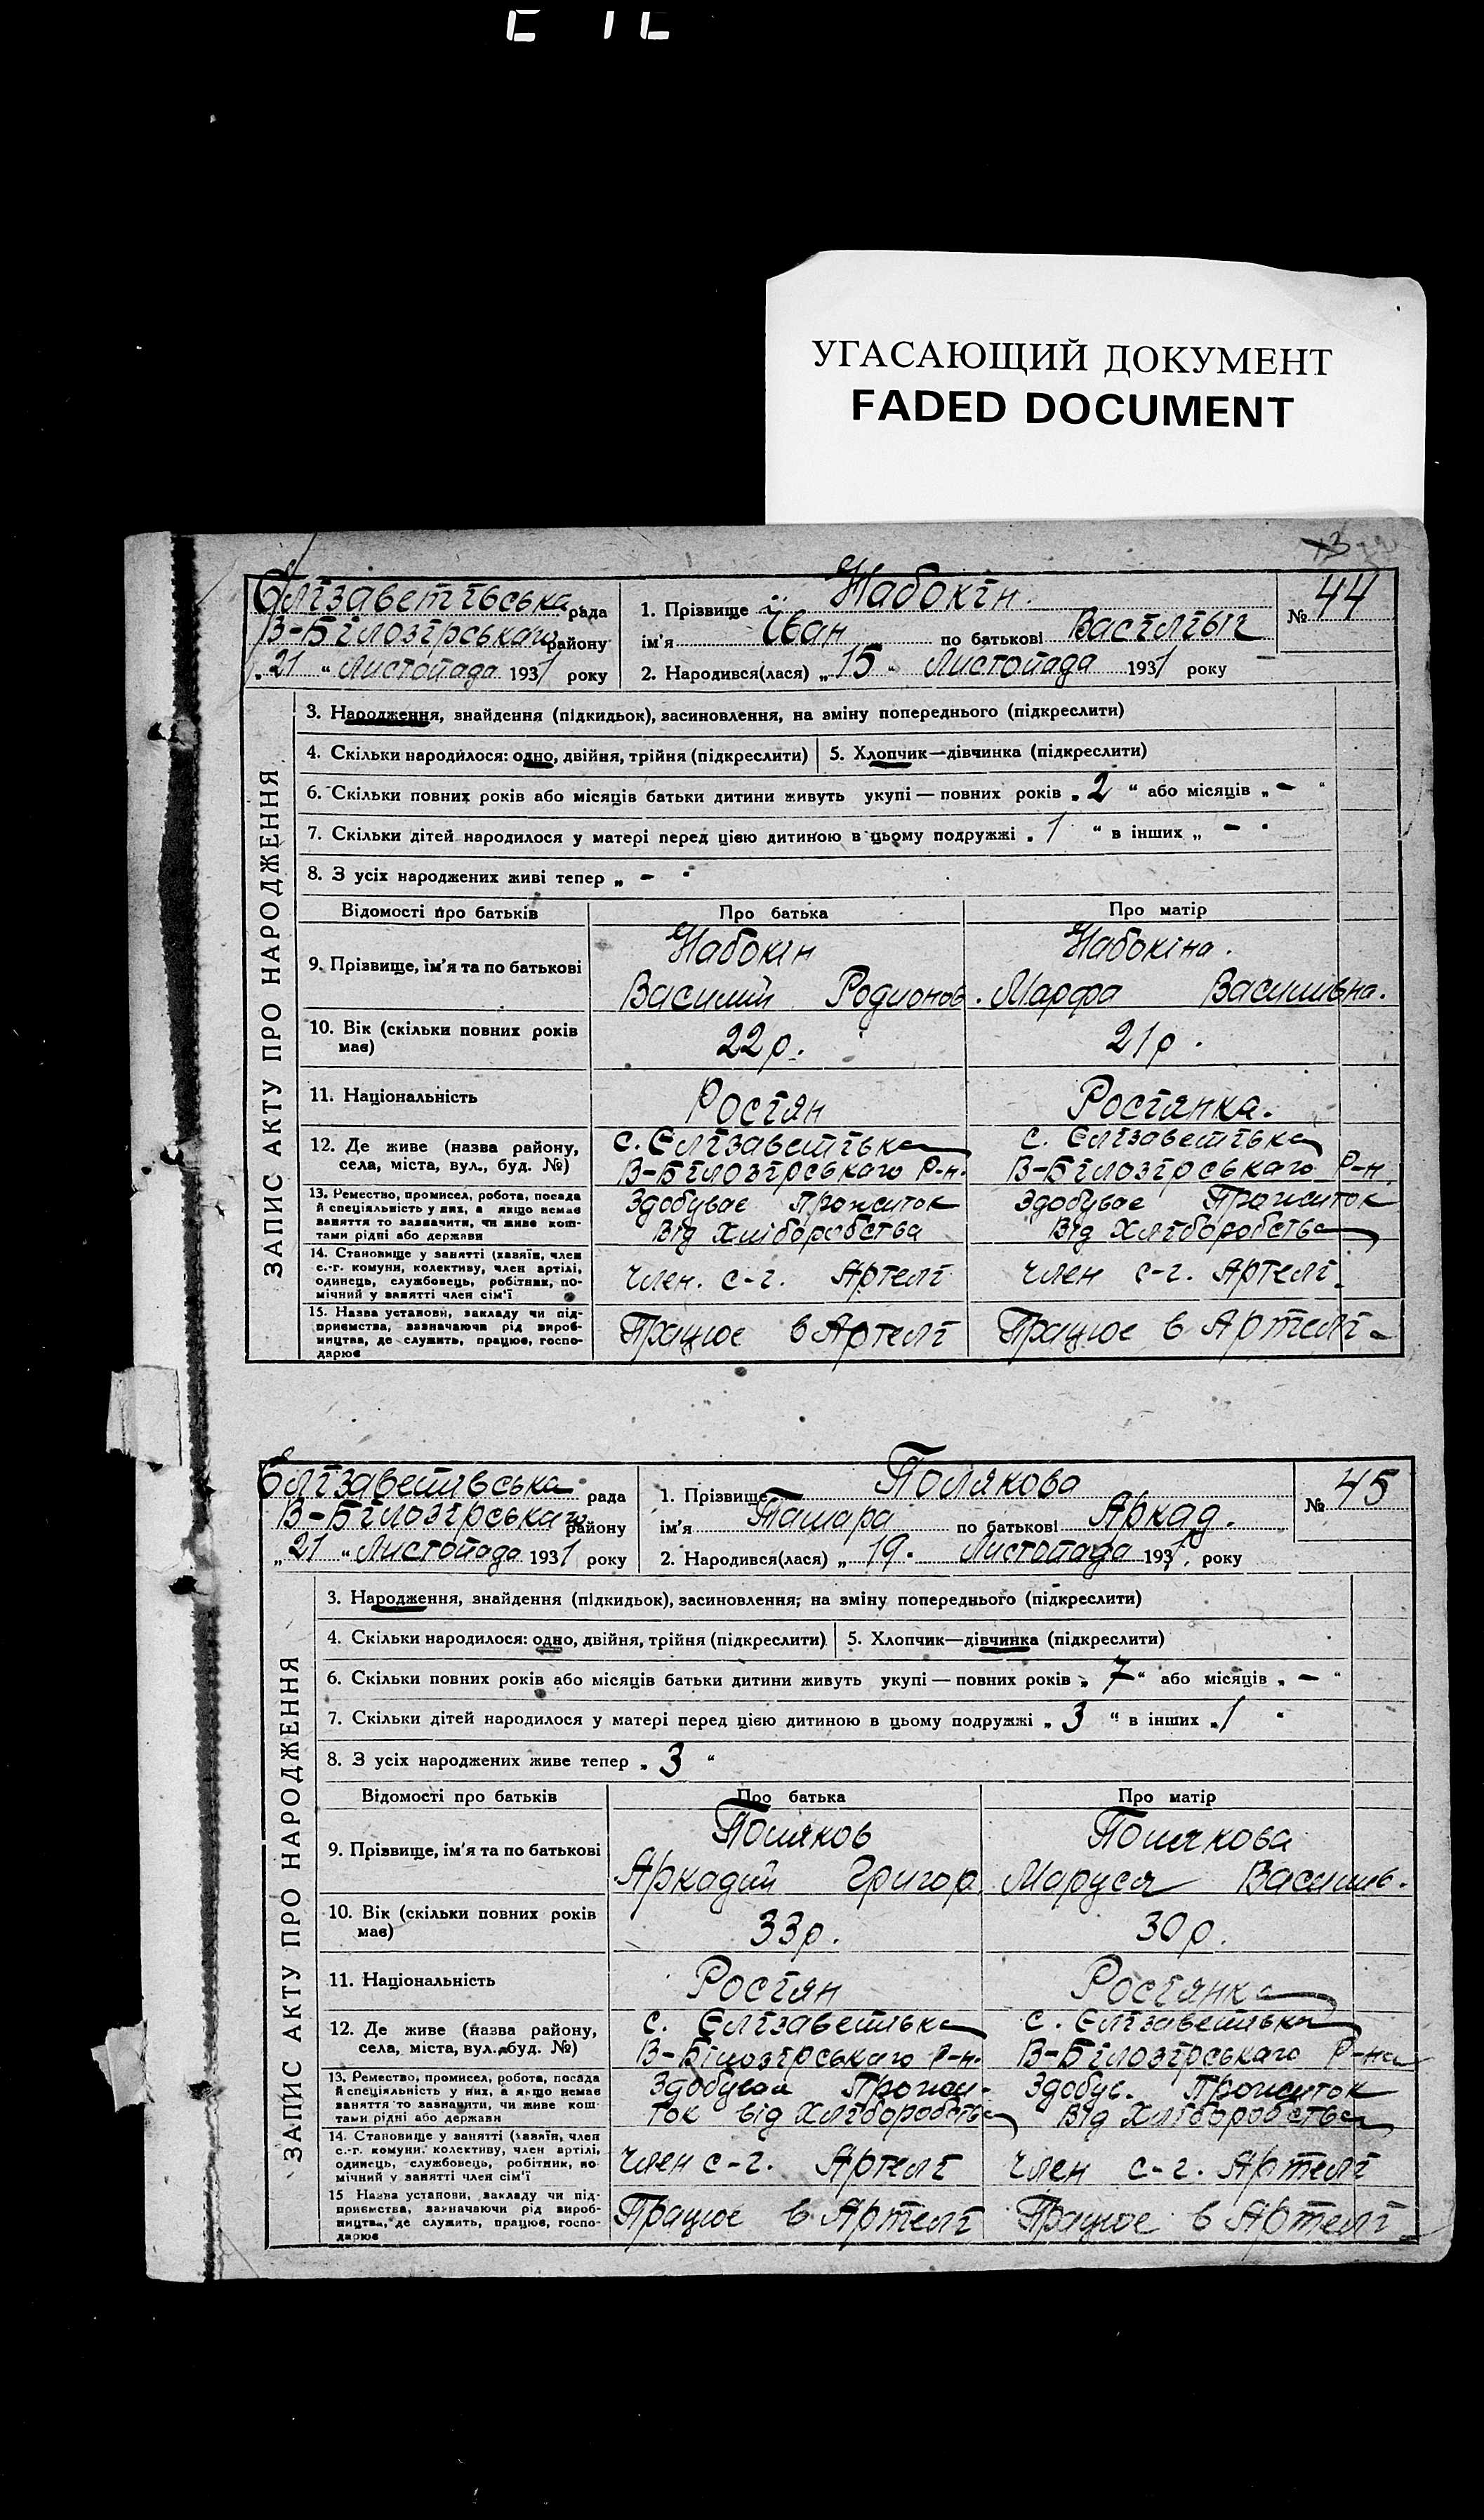 УГАСАЮЩИЙ ДОКУМЕНТ
FADED DOCUMENT
Єлїзаветївська рада
В-Бїлозїрського району
"21" Листопада 1931 року
1. Прізвище Набокїн.
ім'я Їван по батькові Васїлїыч
2. Народився(лася) „15" Листопада 1931 року
№ 44
ЗАПИС АКТУ ПРО НАРОДЖЕННЯ
3. Народження, знайдення (підкидьок), засиновлення, на зміну попереднього (підкреслити)
4. Скільки народилося: одно, двійня, трійня (підкреслити) 5. Хлопчик—дівчинка (підкреслити)
6. Скільки повних років або місяців батьки дитини живуть укупі — повних років „2" або місяців „-"
7. Скільки дітей народилося у матері перед цією дитиною в цьому подружжі „1" в інших „-"
8. З усіх народжених живі тепер „-"
Відомості про батьків Про батька Про матір
9. Прізвище, ім'я та по батькові
Набокїн Набокіна.
Василий Родионов. Марфа Василивна.
10. Вік (скільки повних років має) 22 р. 21 р.
11. Національність Росїян Росїянка.
12. Де живе (назва району, села, міста, вул., буд. №)
с. Єлїзаветївка с. Єлїзаветївка
В-Бїлозїрського Р-н. В-Бїлозїрського Р-н.
13. Ремество, промисел, робота, посада й спеціяльність у них, а якщо немає заняття то зазначити, чи живе коштами рідні або держави
Здобуває Прожиток Здобуває Прожиток
Від Хліборобства Від Хлїборобства
14. Становище у занятті (хазяїн, член с.-г. комуни, колективу, член артілі, одинець, службовець, робітник, помічний у занятті член сім'ї
член. с-г. Артелї член с-г. Артелї.
15. Назва установи, закладу чи підприємства, зазначаючи рід виробництва, де служить, працює, господарює
Працює в Артелї Працює в Артелї
Єлїзаветивська рада
В-Бїлозїрського району
„21" Листопада 1931 року
1. Прізвище Полякова
ім'я Тамара по батькові Аркад.
2. Народився(лася) „19. Листопада 1931 року
№ 45
ЗАПИС АКТУ ПРО НАРОДЖЕННЯ
3. Народження, знайдення (підкидьок), засиновлення, на зміну попереднього (підкреслити)
4. Скільки народилося: одно, двійня, трійня (підкреслити) 5. Хлопчик—дівчинка (підкреслити)
6. Скільки повних років або місяців батьки дитини живуть укупі — повних років „7" або місяців „-"
7. Скільки дітей народилося у матері перед цією дитиною в цьому подружжі „3" в інших „1"
8. З усіх народжених живе тепер „3"
Відомості про батьків Про батька Про матір
9. Прізвище, ім'я та по батькові
Поляков Полякова
Аркадий Григор. Маруся Василив.
10. Вік (скільки повних років має) 33 р. 30 р.
11. Національність Росїян Росїянка
12. Де живе (назва району, села, міста, вул., буд. №)
с. Єлїзаветивка с. Єлїзаветивка
В-Білозїрського р-н. В-Бїлозїрського Р-на
13. Ремество, промисел, робота, посада й спеціяльність у них, а якщо немає заняття то зазначити, чи живе коштами рідні або держави
Прожи- Здобув. Прожиток
ток від Хлїборобства Від Хлїборобства
14. Становище у занятті (хазяїн, член с.-г. комуни, колективу, член артілі, одинець, службовець, робітник, помічний у занятті член сім'ї
член с-г. Артелї член с-г. Артелї
15 Назва установи, закладу чи підприємства, зазначаючи рід виробництва, де служить, працює, господарює
Працює в Артелї Працює в Артелї